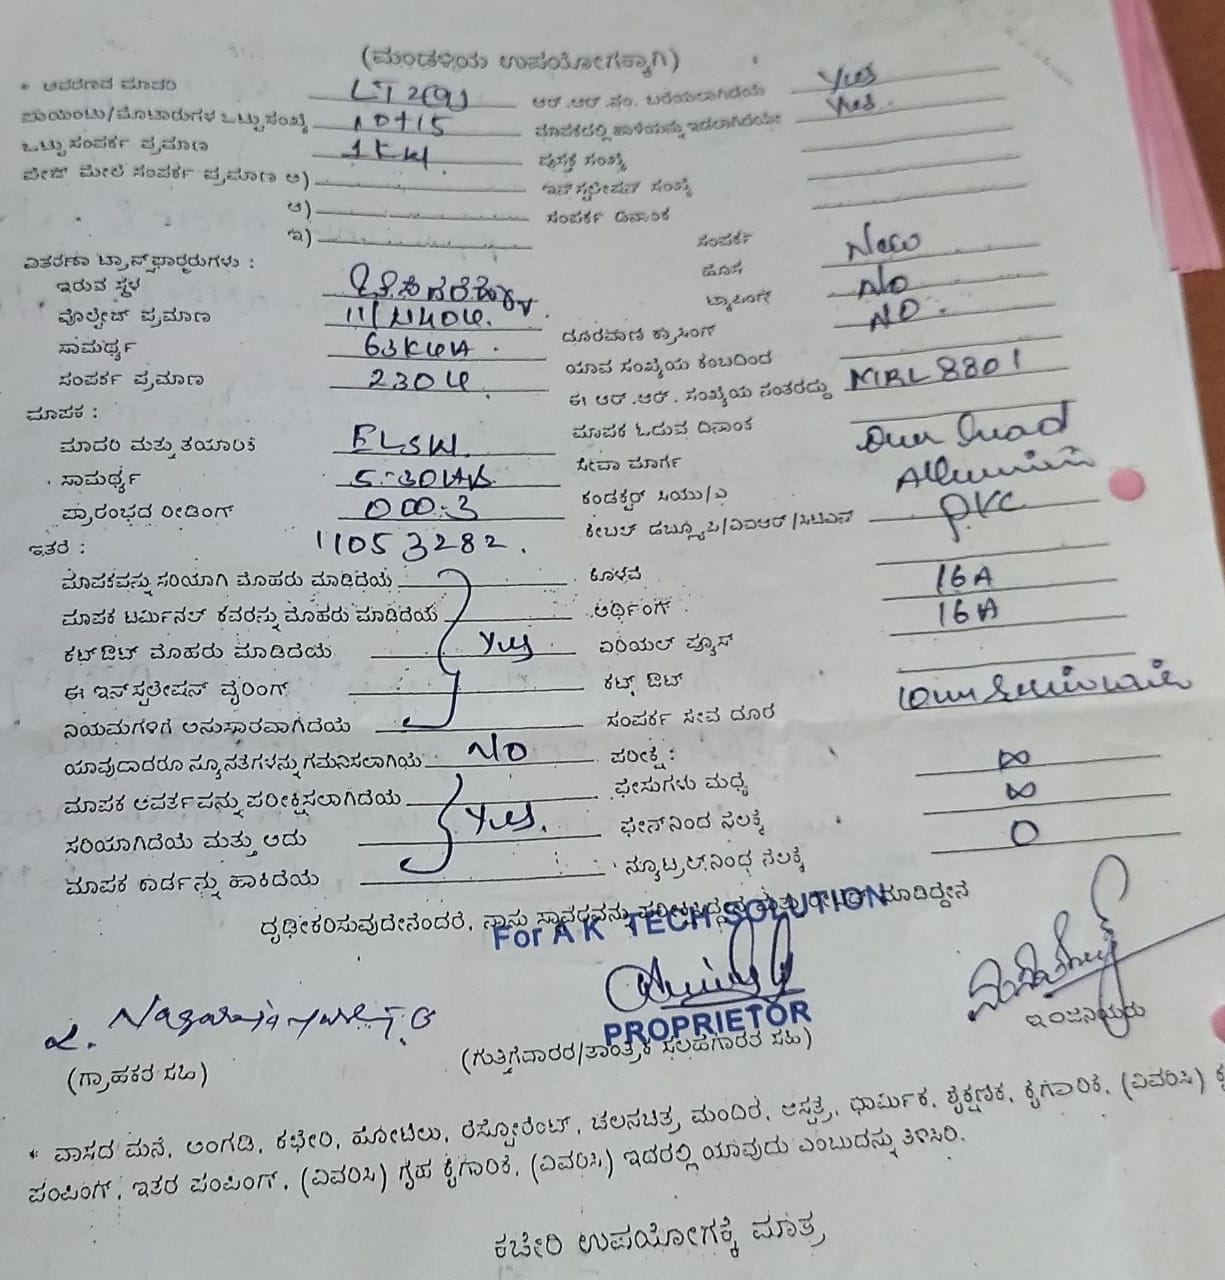 (ಮಂಡಳಿಯ ಉಪಯೋಗಕ್ಕಾಗಿ)
* ಆವರಣದ ಮಾದರಿ LT2(a) ಆರ್.ಆರ್.ನಂ. ಬರೆಯಲಾಗಿದೆಯೆ Yes
ಪಾಯಿಂಟು/ಮೋಟಾರುಗಳ ಒಟ್ಟು ಸಂಖ್ಯೆ 10+15 ಮಾಪಕದಲ್ಲಿ ಹಾಳೆಯನ್ನು ಇಡಲಾಗಿದೆಯೇ Yes.
ಒಟ್ಟು ಸಂಪರ್ಕ ಪ್ರಮಾಣ 1KW. ಪುಸ್ತಕ ಸಂಖ್ಯೆ
ಪೇಜ್ ಮೇಲೆ ಸಂಪರ್ಕ ಪ್ರಮಾಣ ಅ) ಇನ್‌ಸ್ಟಲೇಷನ್ ಸಂಖ್ಯೆ
ಆ) ಸಂಪರ್ಕ ದಿನಾಂಕ
ಇ) ಸಂಪರ್ಕ
ವಿತರಣಾ ಟ್ರಾನ್ಸ್‌ಫಾರ್ಮರುಗಳು : ಹೊಸ New
ಇರುವ ಸ್ಥಳ ಟ್ಯಾಪಿಂಗ್ No
ವೊಲ್ಟೇಜ್ ಪ್ರಮಾಣ ದೂರವಾಣಿ ಕ್ರಾಸಿಂಗ್ NO.
ಸಾಮರ್ಥ್ಯ 63KVA. ಯಾವ ಸಂಖ್ಯೆಯ ಕಂಬದಿಂದ
ಸಂಪರ್ಕ ಪ್ರಮಾಣ 230V. ಈ ಆರ್.ಆರ್. ಸಂಖ್ಯೆಯ ನಂತರದ್ದು MRL8801
ಮಾಪಕ : ಮಾಪಕ ಓದುವ ದಿನಾಂಕ
ಮಾದರಿ ಮತ್ತು ತಯಾರಿಕೆ ಸೇವಾ ಮಾರ್ಗ Over head
ಸಾಮರ್ಥ್ಯ ಕಂಡಕ್ಟರ್ ಸಿಯು/ಎ
ಪ್ರಾರಂಭದ ರೀಡಿಂಗ್ 000.3 ಕೇಬಲ್ ಡಬ್ಲ್ಯೂಪಿ/ವಿಐಆರ್/ಸಿಟಿಎಸ್ PVC
ಇತರೆ : 11053282.
ಮಾಪಕವನ್ನು ಸರಿಯಾಗಿ ಮೊಹರು ಮಾಡಿದೆಯೆ ಕೊಳವೆ
ಮಾಪಕ ಟರ್ಮಿನಲ್ ಕವರನ್ನು ಮೊಹರು ಮಾಡಿದೆಯೆ ಅರ್ಥಿಂಗ್ 16A
ಕಟ್‌ಔಟ್ ಮೊಹರು ಮಾಡಿದೆಯೆ Yes ಏರಿಯಲ್ ಫ್ಯೂಸ್ 16A
ಈ ಇನ್‌ಸ್ಟಲೇಷನ್ ವೈರಿಂಗ್ ಕಟ್ ಔಟ್
ನಿಯಮಗಳಿಗೆ ಅನುಸಾರವಾಗಿದೆಯೆ ಸಂಪರ್ಕ ಸೇವೆ ದೂರ
ಯಾವುದಾದರೂ ನ್ಯೂನತೆಗಳನ್ನು ಗಮನಿಸಲಾಗಿಯೆ NO ಪರೀಕ್ಷೆ :
ಮಾಪಕ ಆವರ್ತವನ್ನು ಪರೀಕ್ಷಿಸಲಾಗಿದೆಯೆ ಫೇಸುಗಳು ಮಧ್ಯೆ ∞
ಸರಿಯಾಗಿದೆಯೆ ಮತ್ತು ಅದು Yes. ಫೇಸ್‌ನಿಂದ ನೆಲಕ್ಕೆ ∞
ಮಾಪಕ ಕಾರ್ಡನ್ನು ಹಾಕಿದೆಯೆ ನ್ಯೂಟ್ರಲ್‌ನಿಂದ ನೆಲಕ್ಕೆ 0
ದೃಢೀಕರಿಸುವುದೇನೆಂದರೆ, ನಾನು ಸ್ಥಾವರವನ್ನು ಮಾಡಿದ್ದೇನೆ
For A K TECH SOLUTION
PROPRIETOR
ಇಂಜಿನಿಯರು
(ಗ್ರಾಹಕರ ಸಹಿ) (ಗುತ್ತಿಗೆದಾರರ/ತಾಂತ್ರಿಕ ಸಲಹೆಗಾರರ ಸಹಿ)
* ವಾಸದ ಮನೆ, ಅಂಗಡಿ, ಕಛೇರಿ, ಹೋಟೆಲು, ರೆಸ್ಟೋರೆಂಟ್, ಚಲನಚಿತ್ರ ಮಂದಿರ, ಆಸ್ಪತ್ರೆ, ಧಾರ್ಮಿಕ, ಶೈಕ್ಷಣಿಕ, ಕೈಗಾರಿಕೆ, (ವಿವರಿಸಿ)
ಪಂಪಿಂಗ್, ಇತರ ಪಂಪಿಂಗ್, (ವಿವರಿಸಿ) ಗೃಹ ಕೈಗಾರಿಕೆ, (ವಿವರಿಸಿ) ಇದರಲ್ಲಿ ಯಾವುದು ಎಂಬುದನ್ನು ತಿಳಿಸಿರಿ.
ಕಚೇರಿ ಉಪಯೋಗಕ್ಕೆ ಮಾತ್ರ